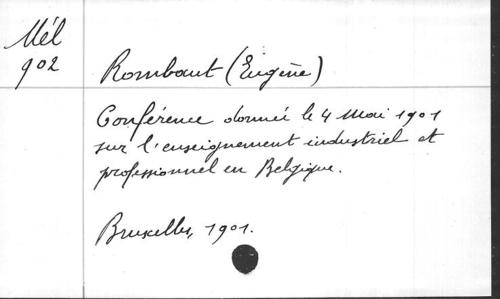 Mél
902
Rombaut (Eugène)
Conférence donnée le 4 Mai 1901
sur l'enseignement industriel et
professionnel en Belgique.
Bruxelles, 1901.